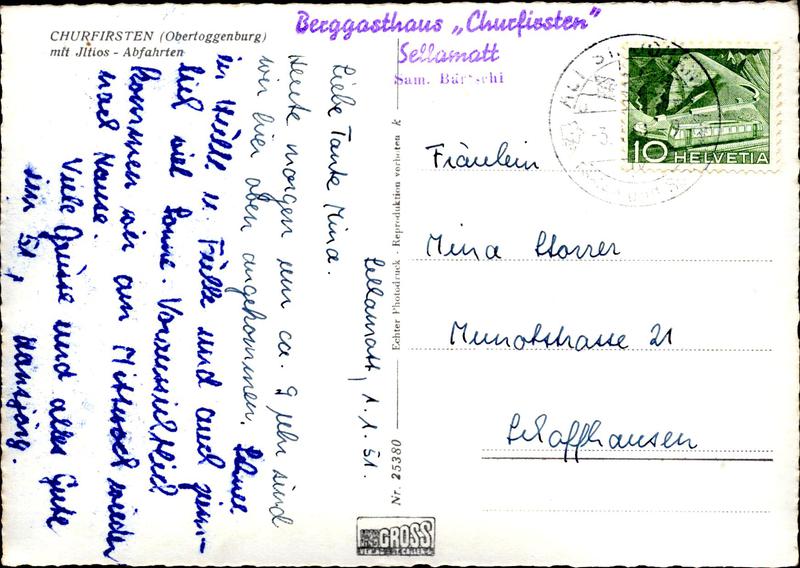 CHURFIRSTEN (Obertoggenburg)
mit Jltios - Abfahrten
Berggasthaus „Churfirsten"
Sellamatt
Sam. Bärtschi
Sellamatt, 1. 1. 51.
Liebe Tante Mina.
Heute morgen um ca. 9 Uhr sind
wir hier oben angekommen. Schnee
in Hülle u. Fülle und auch ziem-
lich viel Sonne. Voraussichtlich
kommen wir am Mittwoch wieder
nach Hause.
Viele Grüsse und alles Gute
im 51,
Hansjörg.
Echter Photodruck - Reproduktion verboten k
Nr. 25380
GROSS
10 HELVETIA
Fräulein
Mina Storrer
Munotstrasse 21
Schaffhausen